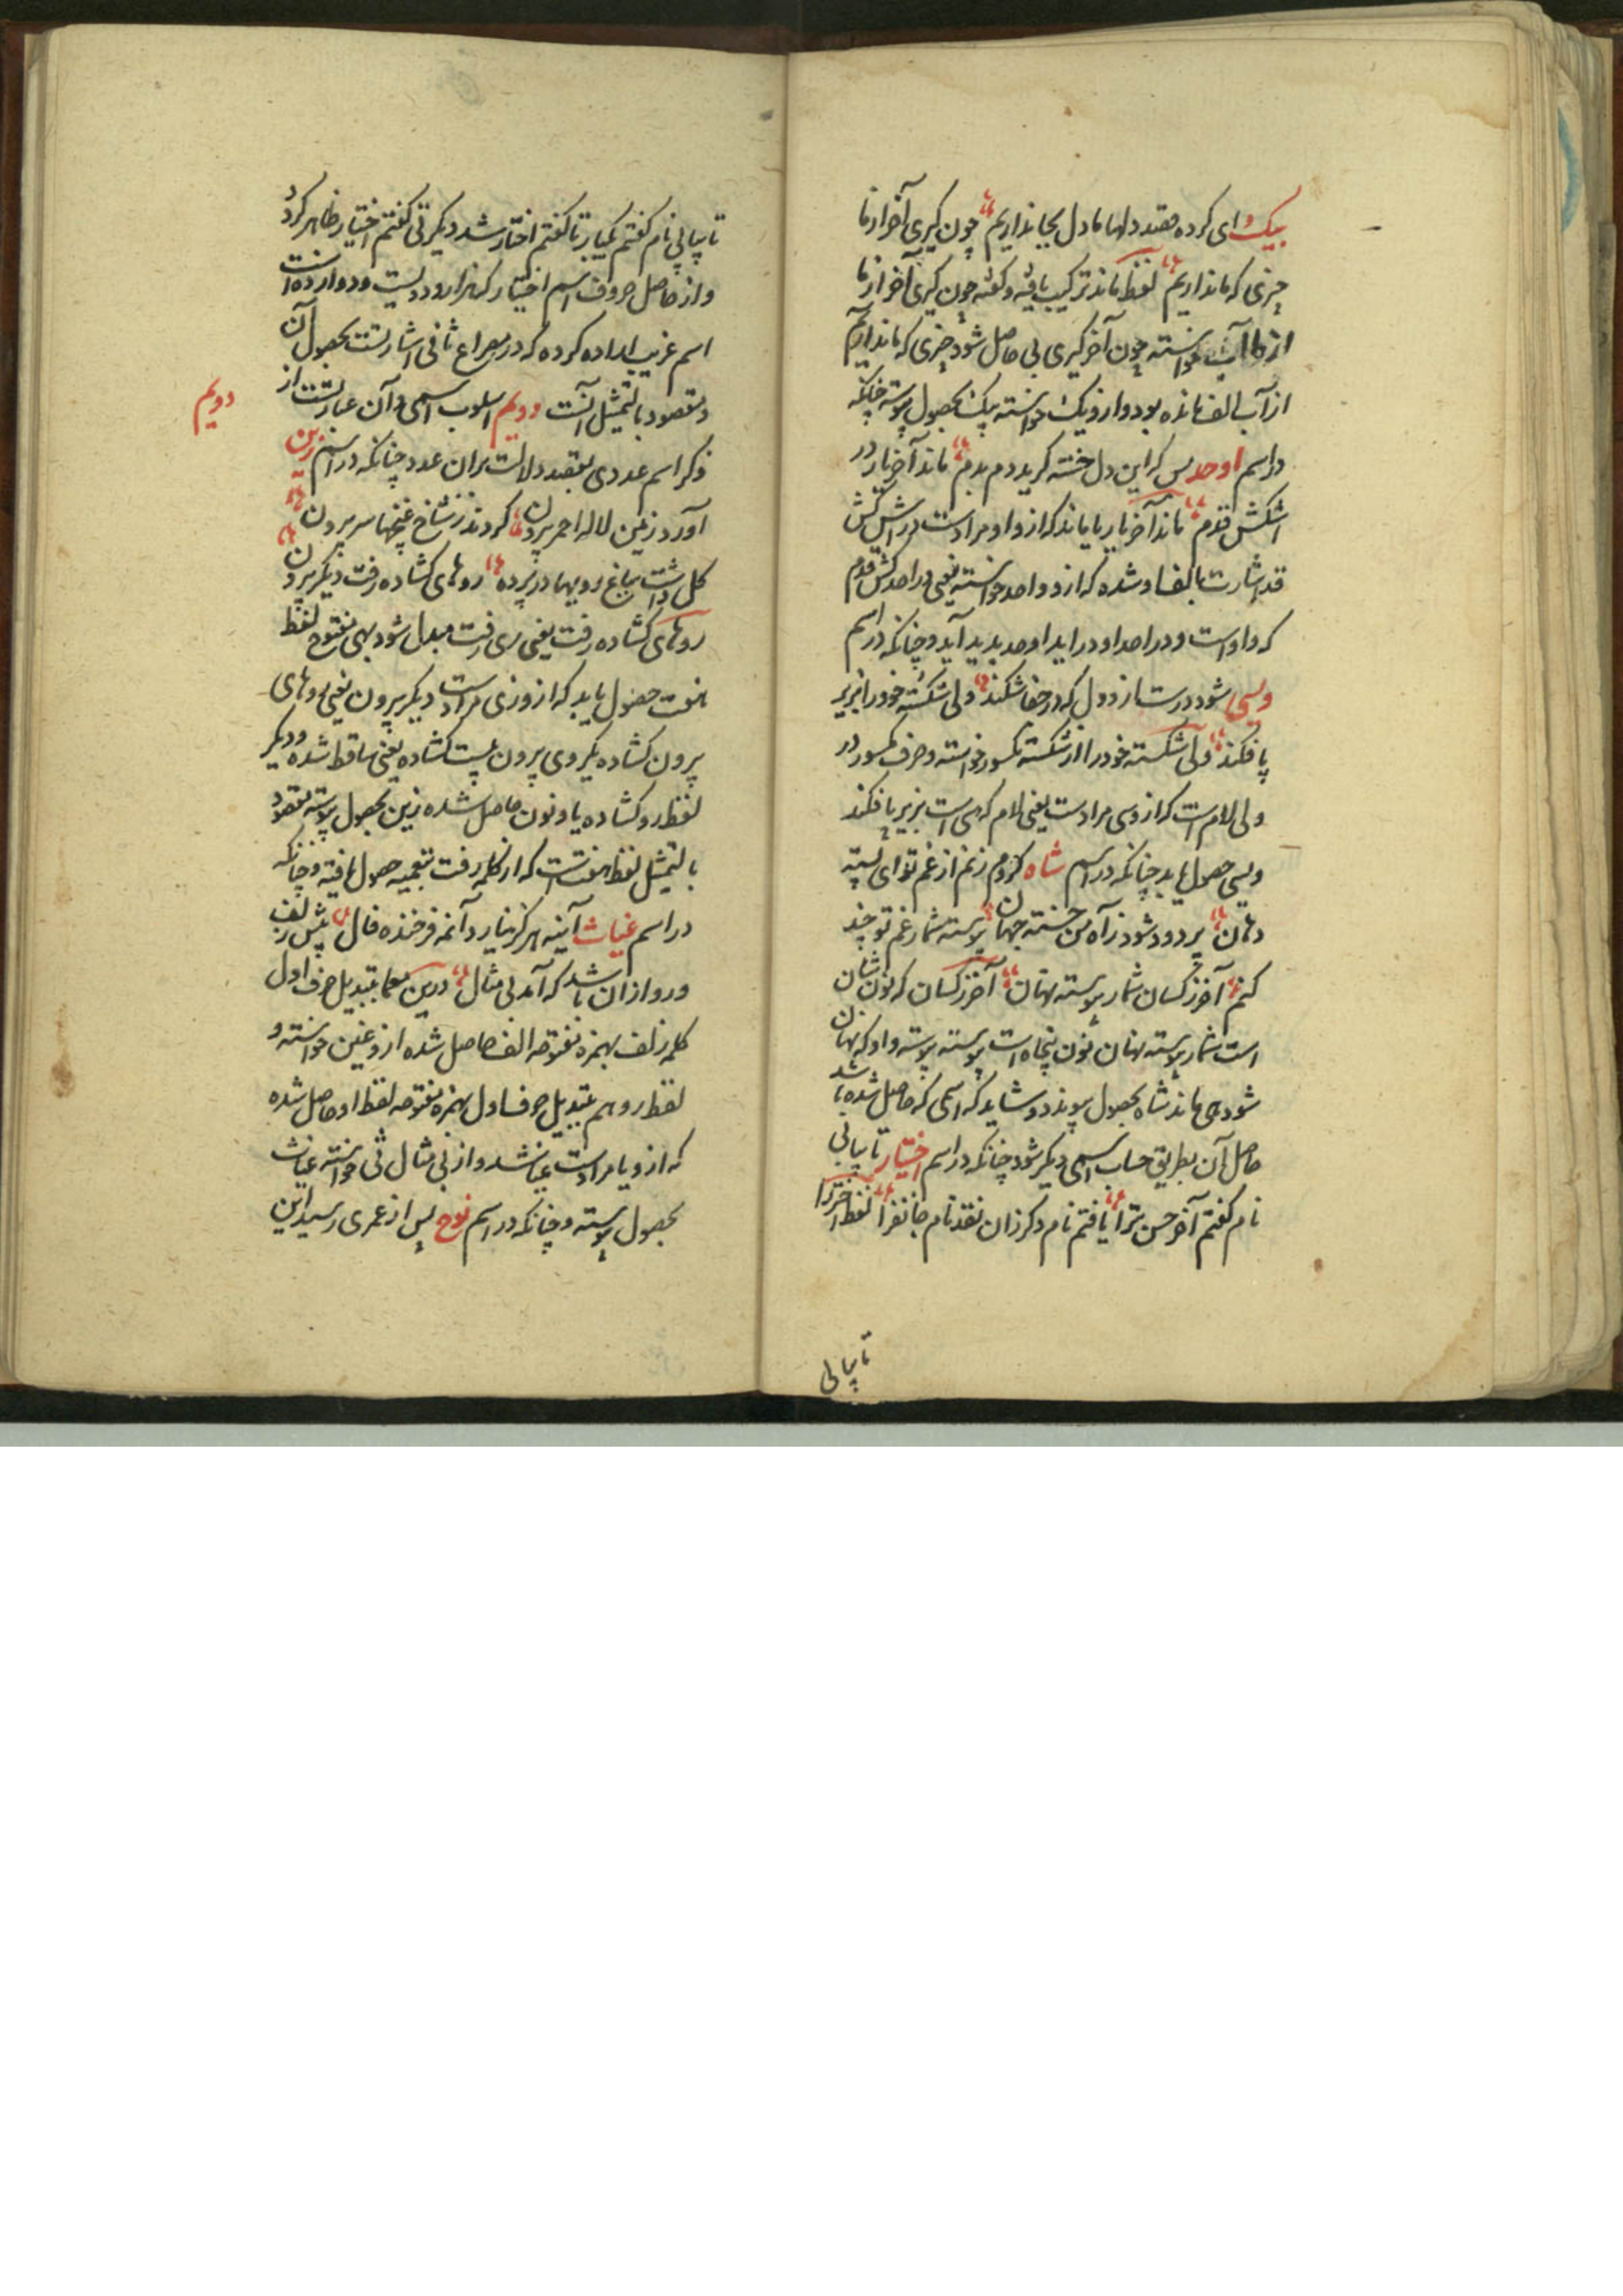 بیک ای کرده قصد دلها ما دل بجا نداریم چون گیری آخر از ما
چیزی که ما نداریم لفظ ماند ترکیب یافته و گفته چون گیری آخر از ما
از ما آب خواسته چون آخر گیری بی حاصل شود چیزی که ما نداریم
از آب الف مانده بود و ازو یک خواسته بیک بحصول پیوسته چنانکه
در اسم اوحد بس که این دل خسته گرید دم بدم ماند آخر یار در
اشکش قدم ماند آخر یار یا ماند که ازو او مرادست در اشکش
قد اشارت بالف او شده که ازو واحد خواسته یعنی در احد کش قدم
که واوست و در احد او در اید اوحد بدید آید و چنانکه در اسم
ویسی شود درست از دول که در جفا شکند ولی شکسته خود را بزیر
پا فکند ولی شکسته خود را از شکسته کسور خواسته و حرف کسور در
ولی لام است که ازو سی مرادست یعنی لام که سی است بزیر پا فکند
ویسی حصول یابد چنانکه در اسم شاه کردم زنم از غم تو ای بسته
دهان پر دود شود ز آه من خسته جهان پیوسته شمار غم تو چند
کنم آخر ز کسان شمار پیوسته نهان آخر ز کسان که نون شان
است شمار پیوسته نهان نون پنجاه است پیوسته پیوسته واو که نهان
شود می ماند شاه بحصول پیوندد و شاید که اسمی که حاصل شده باشد
حاصل آن بطریق حساب اسمی دیگر شود چنانکه در اسم اختیار تا بپایی
نام گفتم آخر حسن ترا یافتم نام دگر زان نقد نام جانفزا لفظ اختر را
تا بپایی
تا بپایی نام گفتم یکبار تا گفتم اختار شد دیگر تی گفتم اختیار ظاهر کرد
و از حاصل حروف اسم اختیار که هزار و دویست و دوازده است
اسم غریب اراده کرده که در مصراع ثانی اشارتست بحصول آن
و مقصود بالتمثیل آنست دویم اسلوب اسمی و آن عبارتست از
دویم
ذکر اسم عددی بقصد دلالت بران عدد چنانکه در اسم زین
آورد زمین لاله احمر بیرون کردند ز شاخ غنچها سر بیرون
گل داشت بباغ رویها در پرده روهای گشاده رفت دیگر بیرون
روهای گشاده رفت یعنی ری رفت مبدل شود بهی مفتوح لفظ
هفت حصول یابد که ازو زی مرادست دیگر بیرون یعنی روهای
بیرون گشاده یکروی بیرون بیست گشاده یعنی ساقط شده و دیگر
لفظ رو گشاده یا و نون حاصل شده زین بحصول پیوسته مقصود
بالتمثیل لفظ هفت است که از کلمه رفت بتعمیه حصول یافته و چنانکه
در اسم غیاث آینه هر کز نیارد آنمه فرخنده فال پیش زلف
و رو از ان باشد که آمد بی مثال درین معما بتبدیل حرف اول
کلمه زلف بهمزه مفتوحه الف حاصل شده ازو غین خواسته و
لفظ رو هم بتبدیل حرف اول بهمزه مفتوحه لفظ او حاصل شده
که ازو یا مرادست غیا شد و از بی مثال ثی خواسته غیاث
بحصول پیوسته و چنانکه در اسم نوح پس از عمری رسید این